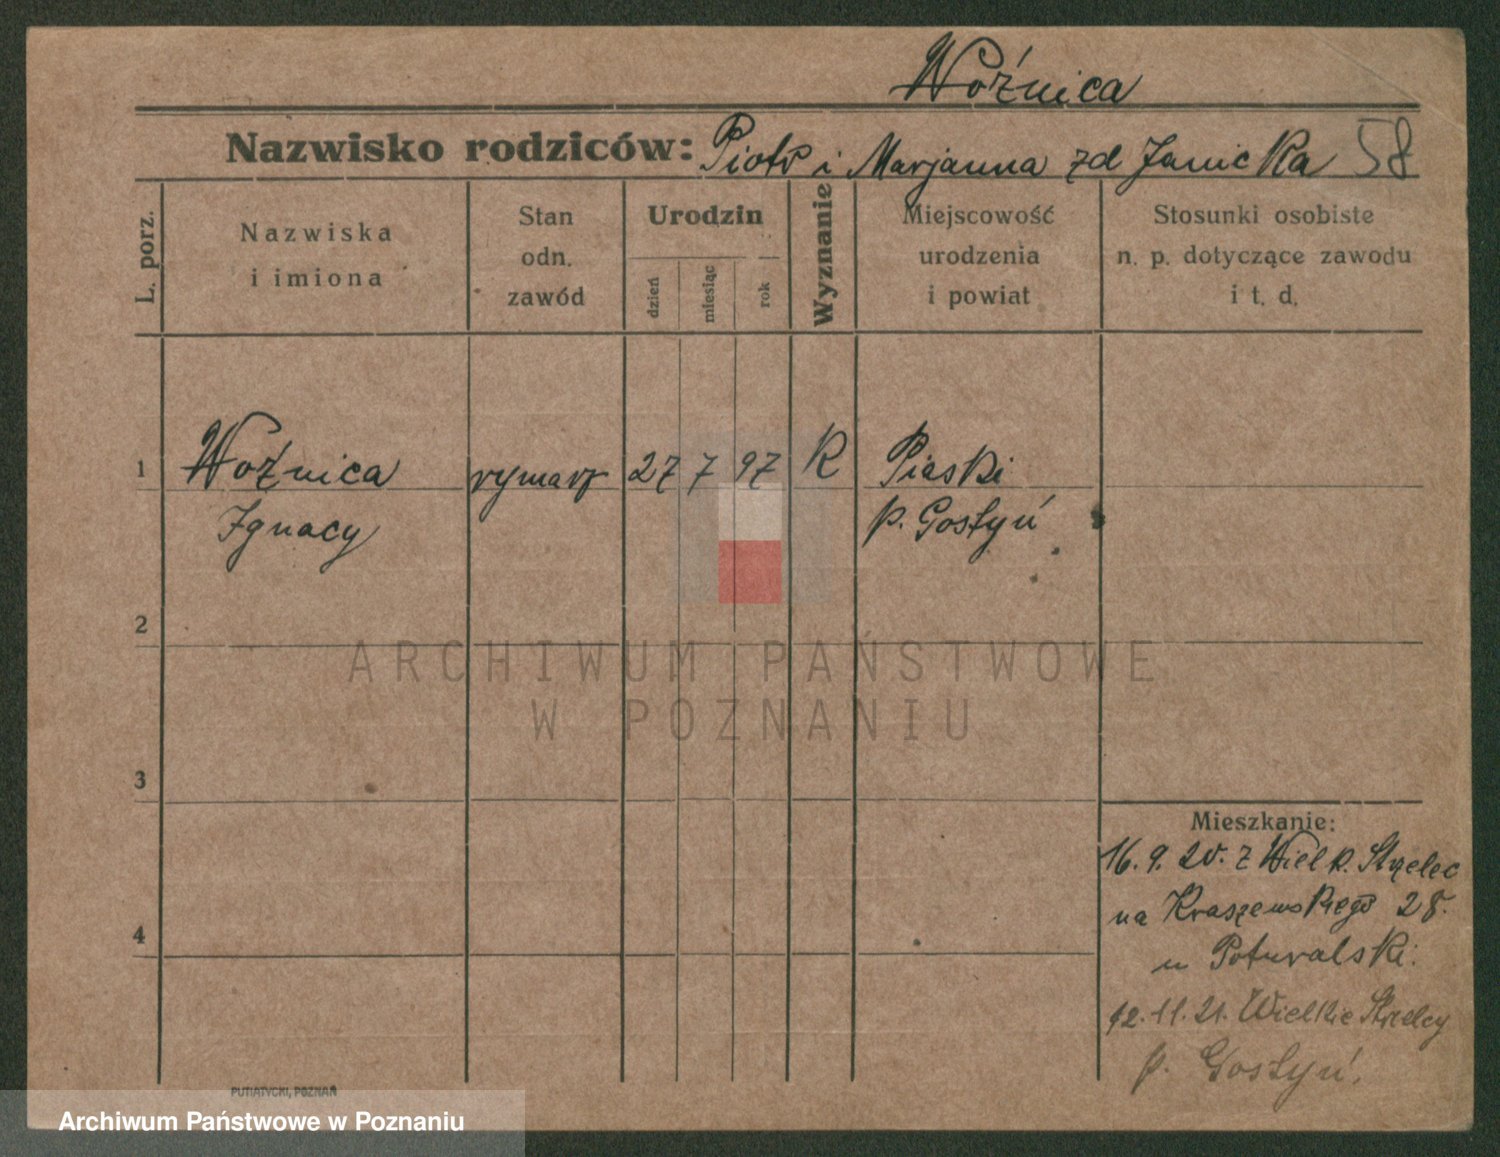 Woźnica
Nazwisko rodziców: Piotr i Marjanna zd Janicka 58
L. porz.
Nazwiska
i imiona
Stan
odn.
zawód
Urodzin
dzień
miesiąc
rok
Wyznanie
Miejscowość
urodzenia
i powiat
Stosunki osobiste
n. p. dotyczące zawodu
i t. d.
1 Woźnica rymarz 27 7 97 K Piaski
Ignacy p. Gostyń
2
ARCHIWUM PAŃSTWOWE
W POZNANIU
3
Mieszkanie:
16. 9. 20. z Wielk. Strzelec
na Kraszewskiego 28.
4
u Poturalski:
12. 11. 21. Wielkie Strzelcy
p. Gostyń.
PUTIATYCKI, POZNAŃ
Archiwum Państwowe w Poznaniu